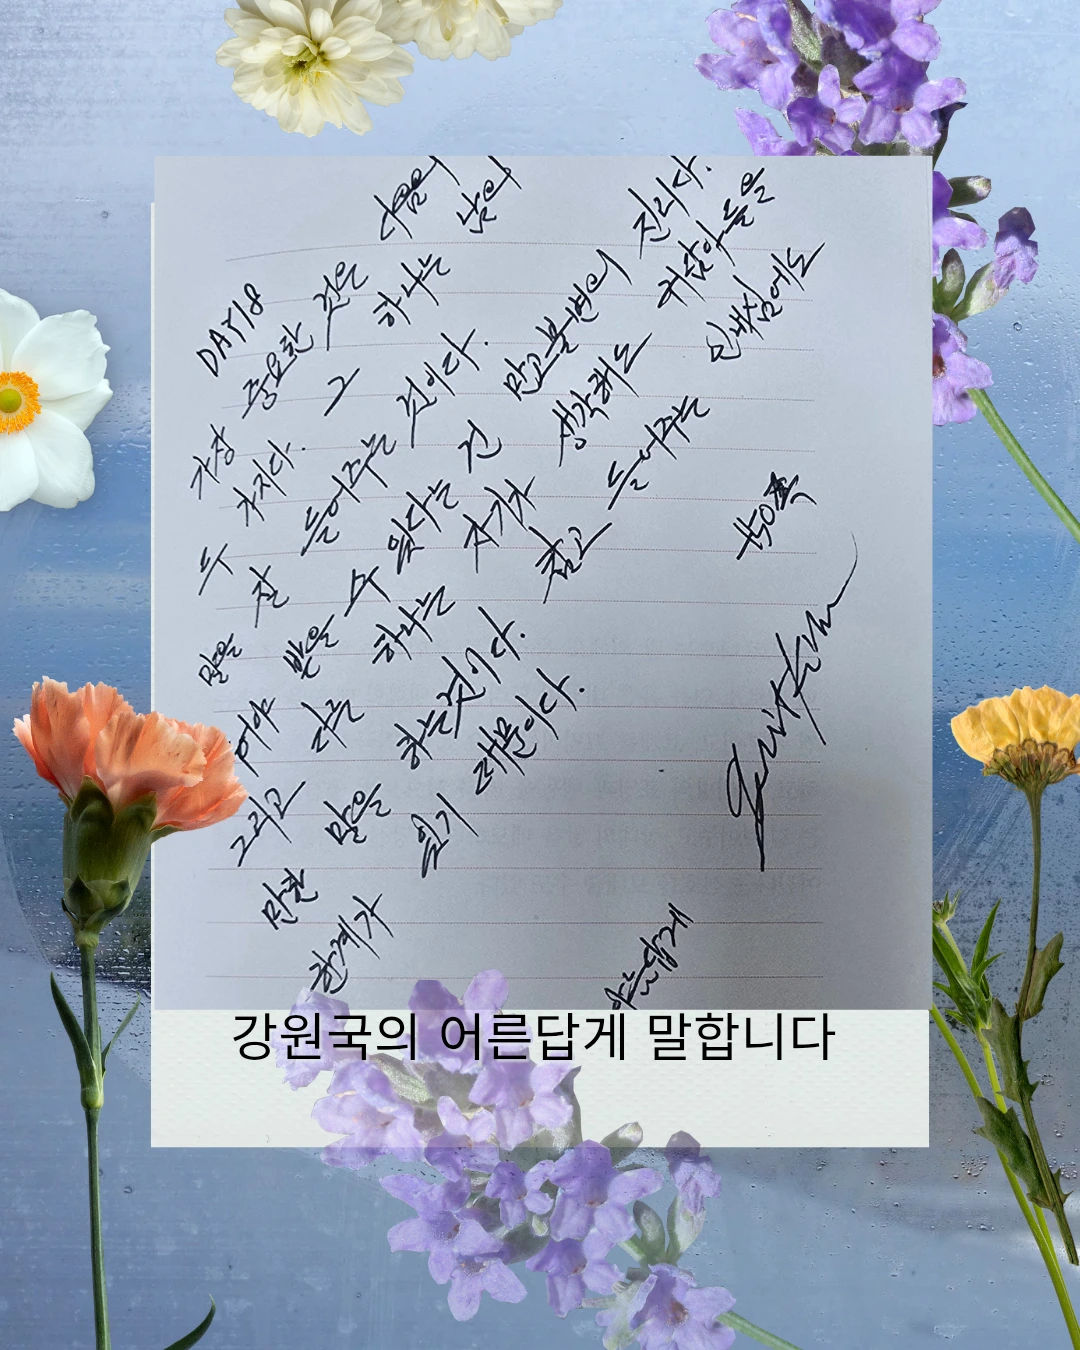 DAY18
가장 중요한 것은 다음의
두 가지다. 그 하나는 남의
말을 잘 들어주는 것이다.
줘야 받을 수 있다는 건 만고불변의 진리다.
그리고 다른 하나는 자기가 생각해도 귀담아들을
만한 말을 하는 것이다. 참고 들어주는 인내심에도
한계가 있기 때문이다.
150쪽
어른답게
강원국의 어른답게 말합니다